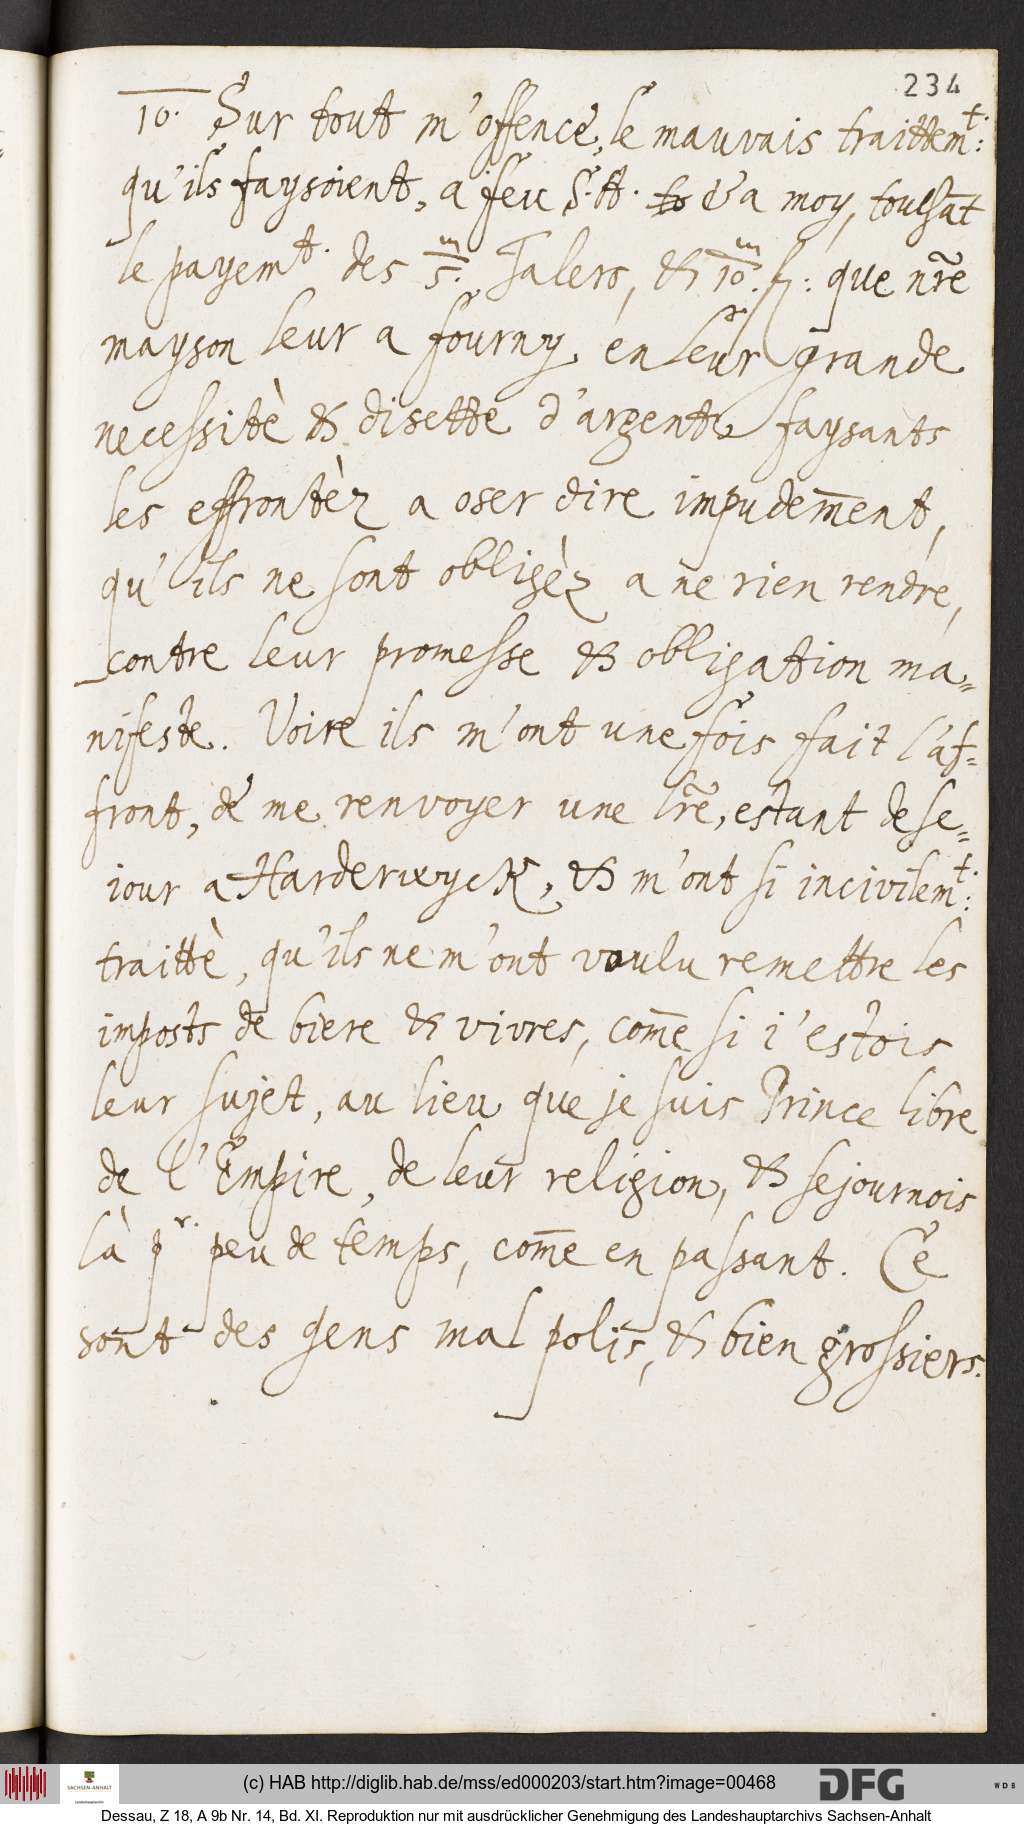 234
10. Sur tout m'offence, le mauvais traittem.t:
qu'ils faysoient, a feu S. A. & a moy, touch̃at
le payem.t des 5.m Talers, & 10.m fl: que nr̃e
mayson leur a fourny, en leur grande
necessitè & disette d'argent, faysants
les effrontèz a oser dire impudem̃ent,
qu'ils ne sont obligèz a ne rien rendre,
contre leur promesse & obligation ma-
nifeste. Voire ils m'ont une fois fait l'af-
front, de me renvoyer une lr̃e, estant de se-
iour a Harderwyck, & m'ont si incivilem.t:
traittè, qu'ils ne m'ont voulu remettre les
imposts de biere & vivres, com̃e si i'estois
leur sujet, au lieu que je suis Prince libre
de l'Empire, de leur religion, & sejournois
là p.r peu de temps, com̃e en passant. Ce
sont des gens mal polis, & bien grossiers.
SACHSEN-ANHALT
(c) HAB http://diglib.hab.de/mss/ed000203/start.htm?image=00468
DFG
WDB
Dessau, Z 18, A 9b Nr. 14, Bd. XI. Reproduktion nur mit ausdrücklicher Genehmigung des Landeshauptarchivs Sachsen-Anhalt